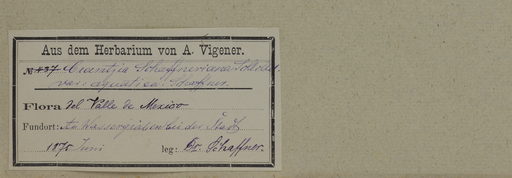 Aus dem Herbarium von A. Vigener.
№ 437 Crantzia Schaffneriana Schlecht.
var: aquatica: Schaffner.
Flora del Valle de Mexico
Fundort: In Wassergräben bei der Stadt
1875 Juni leg: Dr. Schaffner.